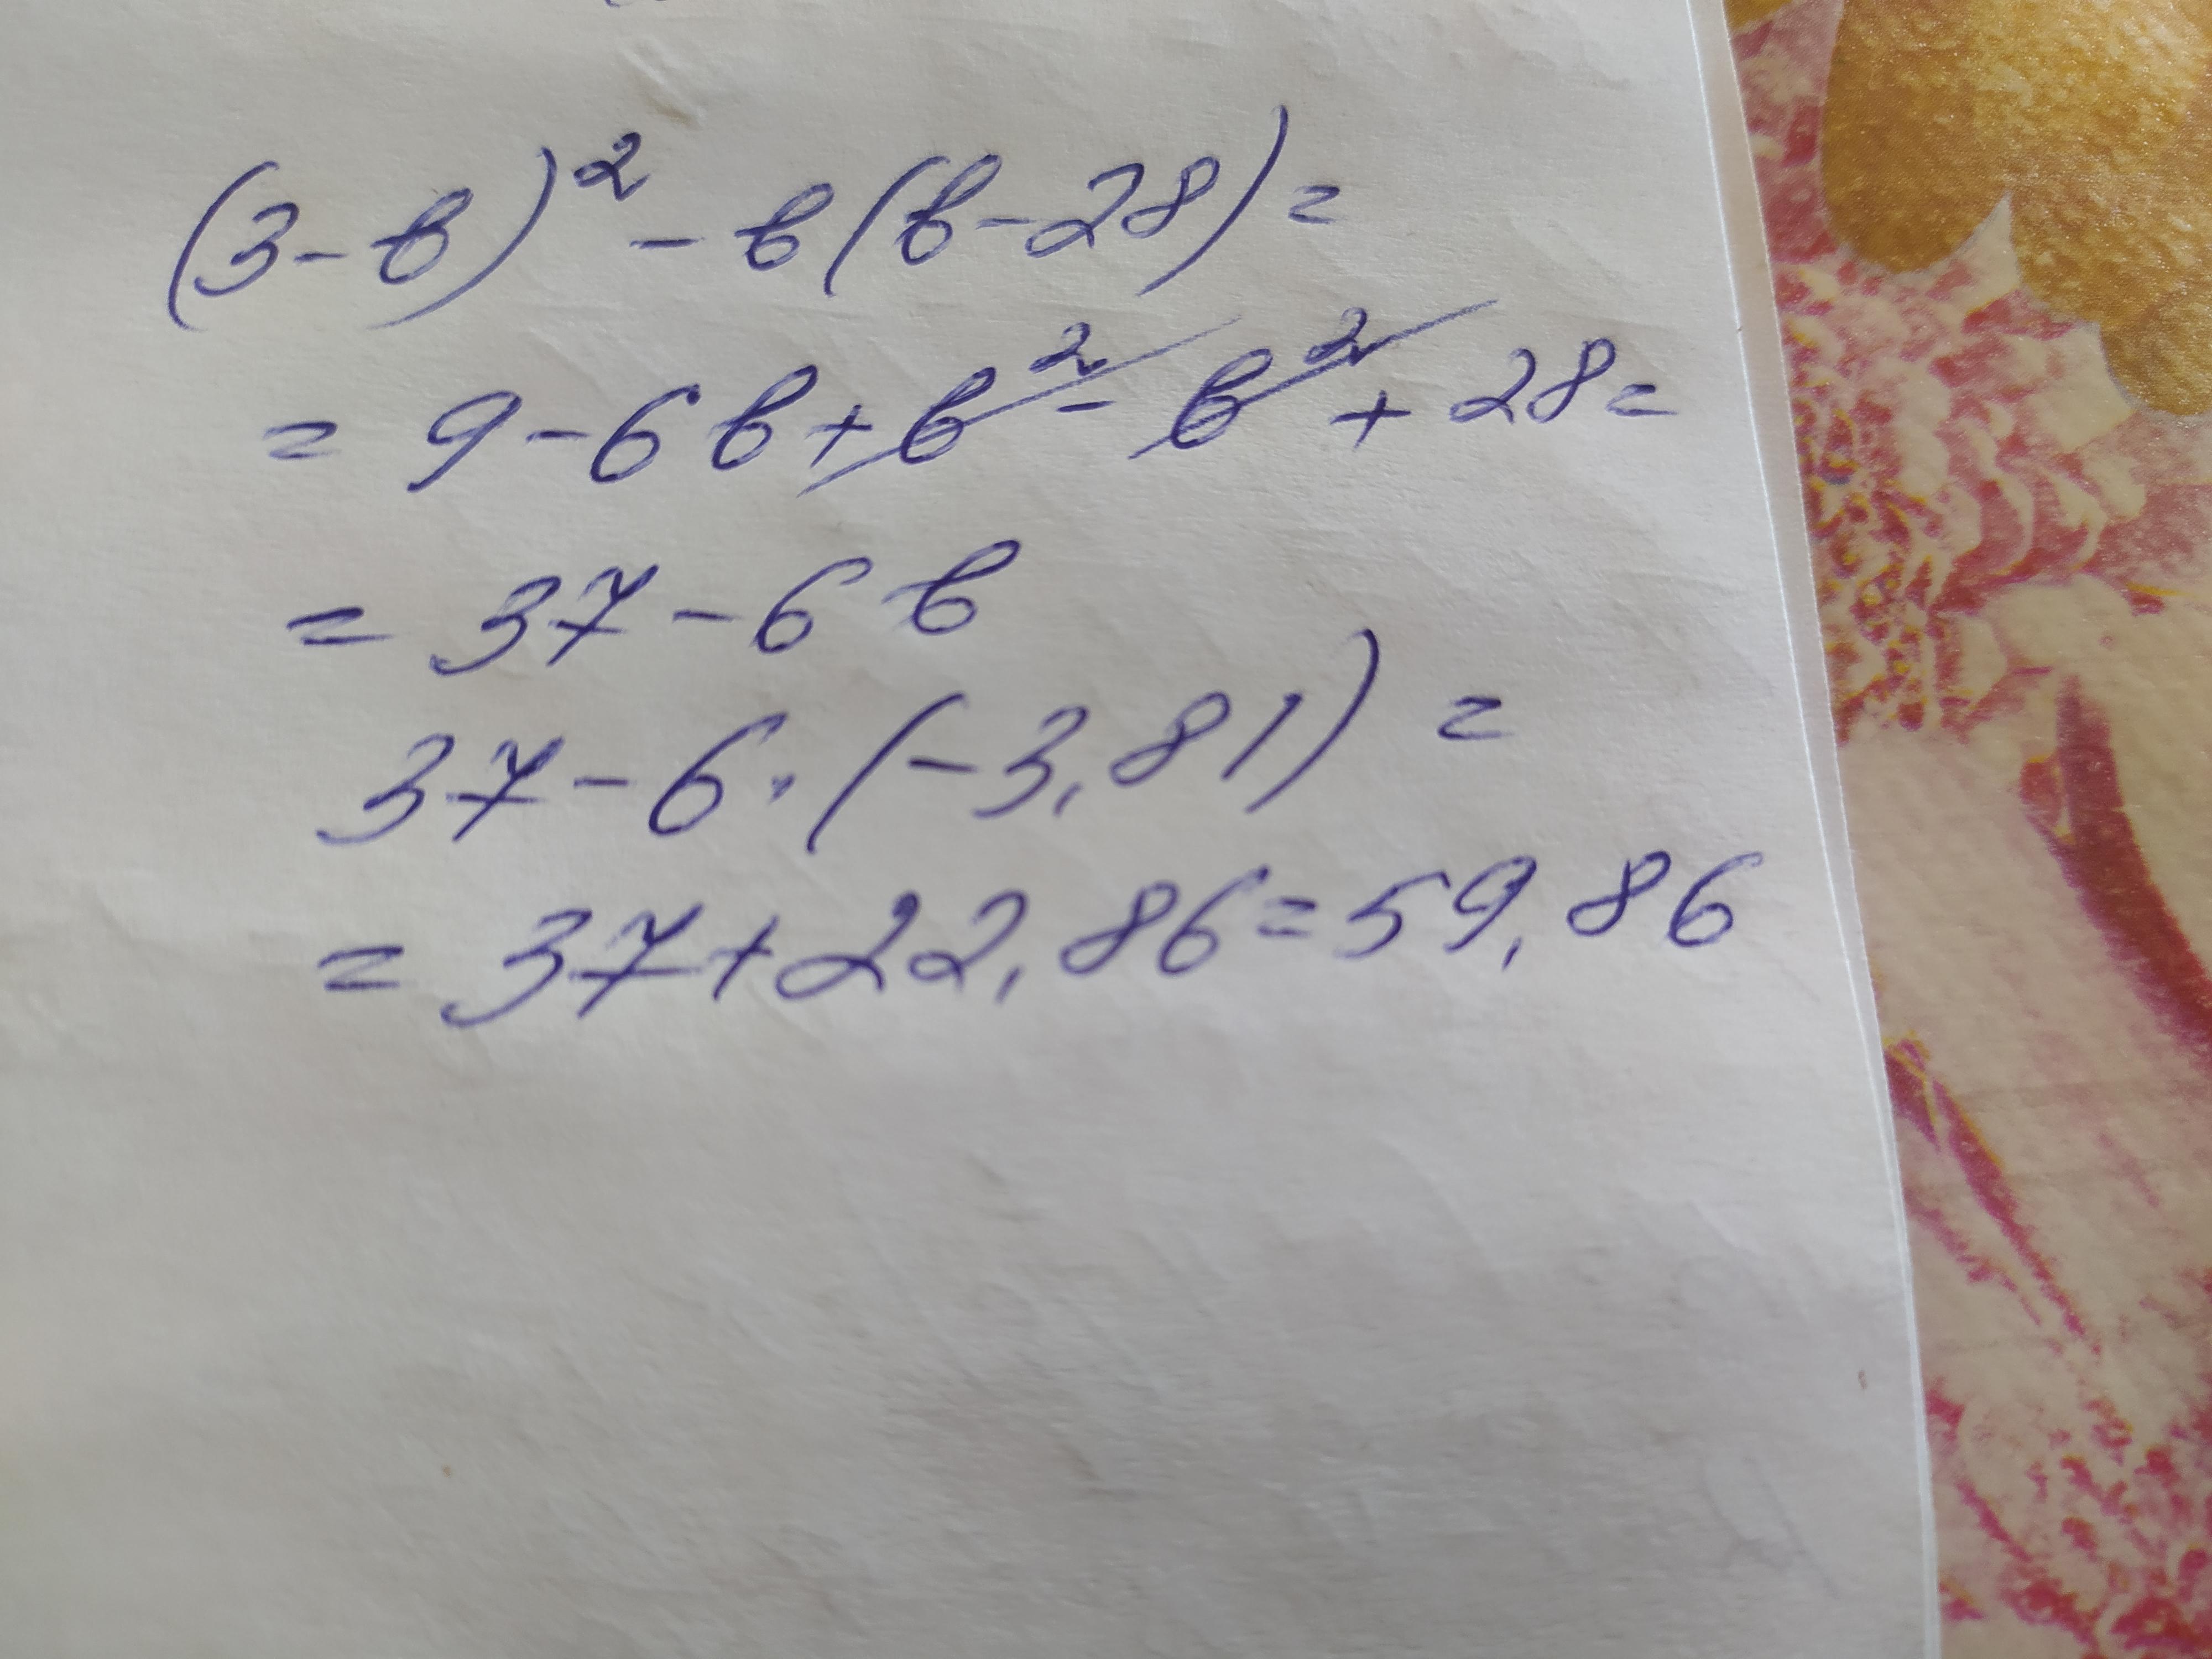 (3-в)² - в(в-28)=
= 9-6в+в² - в² + 28=
= 37-6в
37-6·(-3,81) =
= 37+22,86=59,86